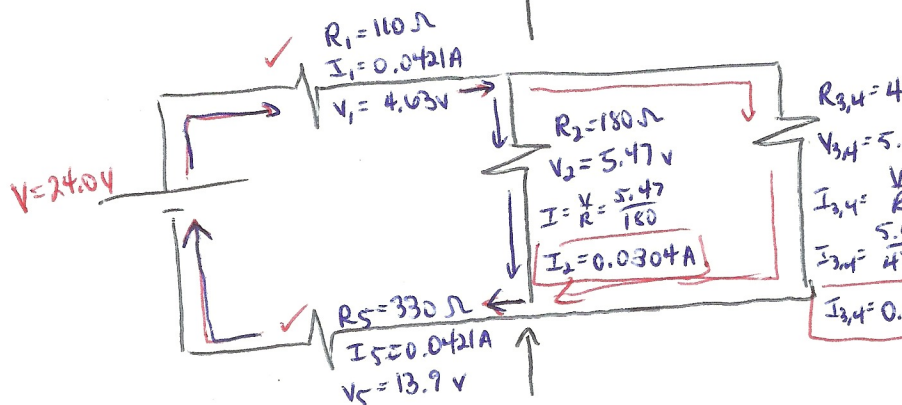 R₁=110Ω
I₁=0.0421A
V₁=4.63v
V=24.0V
R₂=180Ω
V₂=5.47v
I=V/R=5.47/180
I₂=0.0304A
R₃,₄=4
V₃,₄=5.
I₃,₄=V
I₃,₄=5.
I₃,₄=0.
R₅=330Ω
I₅=0.0421A
V₅=13.9v